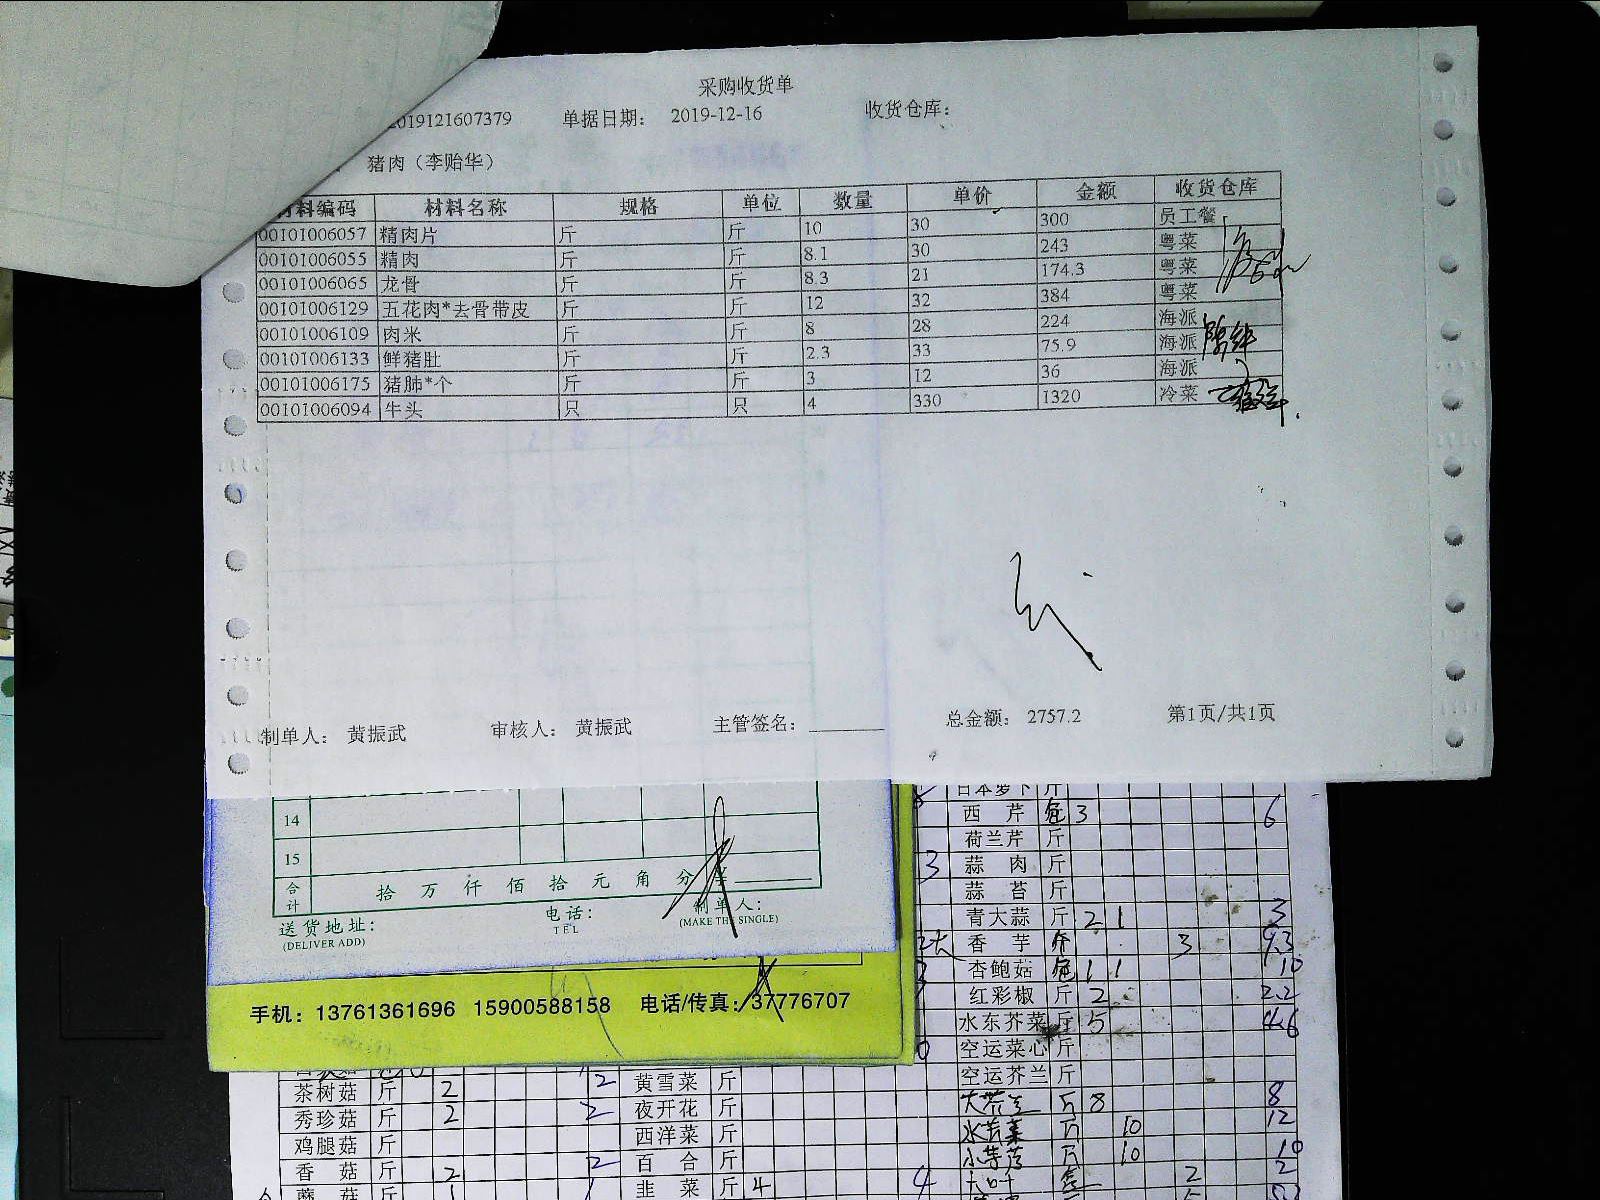 采购收货单
2019121607379 单据日期： 2019-12-16 收货仓库：
猪肉（李贻华）
材料编码 材料名称 规格 单位 数量 单价 金额 收货仓库
00101006057 精肉片 斤 斤 10 30 300 员工餐
00101006055 精肉 斤 斤 8.1 30 243 粤菜
00101006065 龙骨 斤 斤 8.3 21 174.3 粤菜
00101006129 五花肉*去骨带皮 斤 斤 12 32 384 粤菜
00101006109 肉米 斤 斤 8 28 224 海派
00101006133 鲜猪肚 斤 斤 2.3 33 75.9 海派
00101006175 猪肺*个 斤 斤 3 12 36 海派
00101006094 牛头 只 只 4 330 1320 冷菜
制单人： 黄振武 审核人： 黄振武 主管签名： 总金额： 2757.2 第1页/共1页
14
15
合计 拾 万 仟 佰 拾 元 角 分 ¥
送货地址： 电话： 制单人：
(DELIVER ADD) TEL (MAKE THE SINGLE)
手机：13761361696 15900588158 电话/传真：37776707
日本萝卜 斤
西芹 包 3 6
荷兰芹 斤
3 蒜肉 斤
蒜苔 斤
青大蒜 斤 2 1 3
香芋 斤 3 9.3
杏鲍菇 包 1 1 10
红彩椒 斤 2 2.2
水东芥菜 斤 5 4.6
空运菜心 斤
空运芥兰 斤
斤 8 8
斤 10 12
斤 10 10
2 2
茶树菇 斤 2 2 黄雪菜 斤
秀珍菇 斤 2 2 夜开花 斤
鸡腿菇 斤 西洋菜 斤
香菇 斤 2 2 百合 斤
蘑菇 斤 1 1 韭菜 斤 4 4